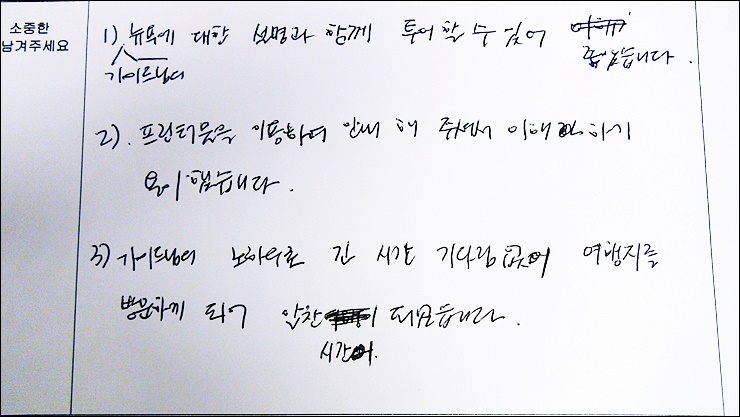 소중한
남겨주세요
1) 뉴욕에 대한 설명과 함께 투어 할 수 있어
좋았습니다.
가이드님의
2). 프린터물을 이용하여 안내 해 주셔서 이해 하기
용이했습니다.
3) 가이드님의 노하우로 긴 시간 기다림 없이 여행지를
방문하게 되어 알찬 이 되었습니다.
시간